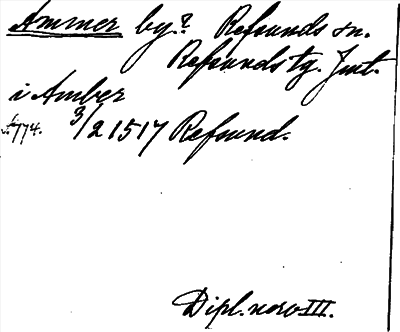 Ammer by? Refsunds sn.
Refsunds tg. Jmt.
i Amber
s. 774. 3/2 1517 Refsund.
Dipl. norv III.